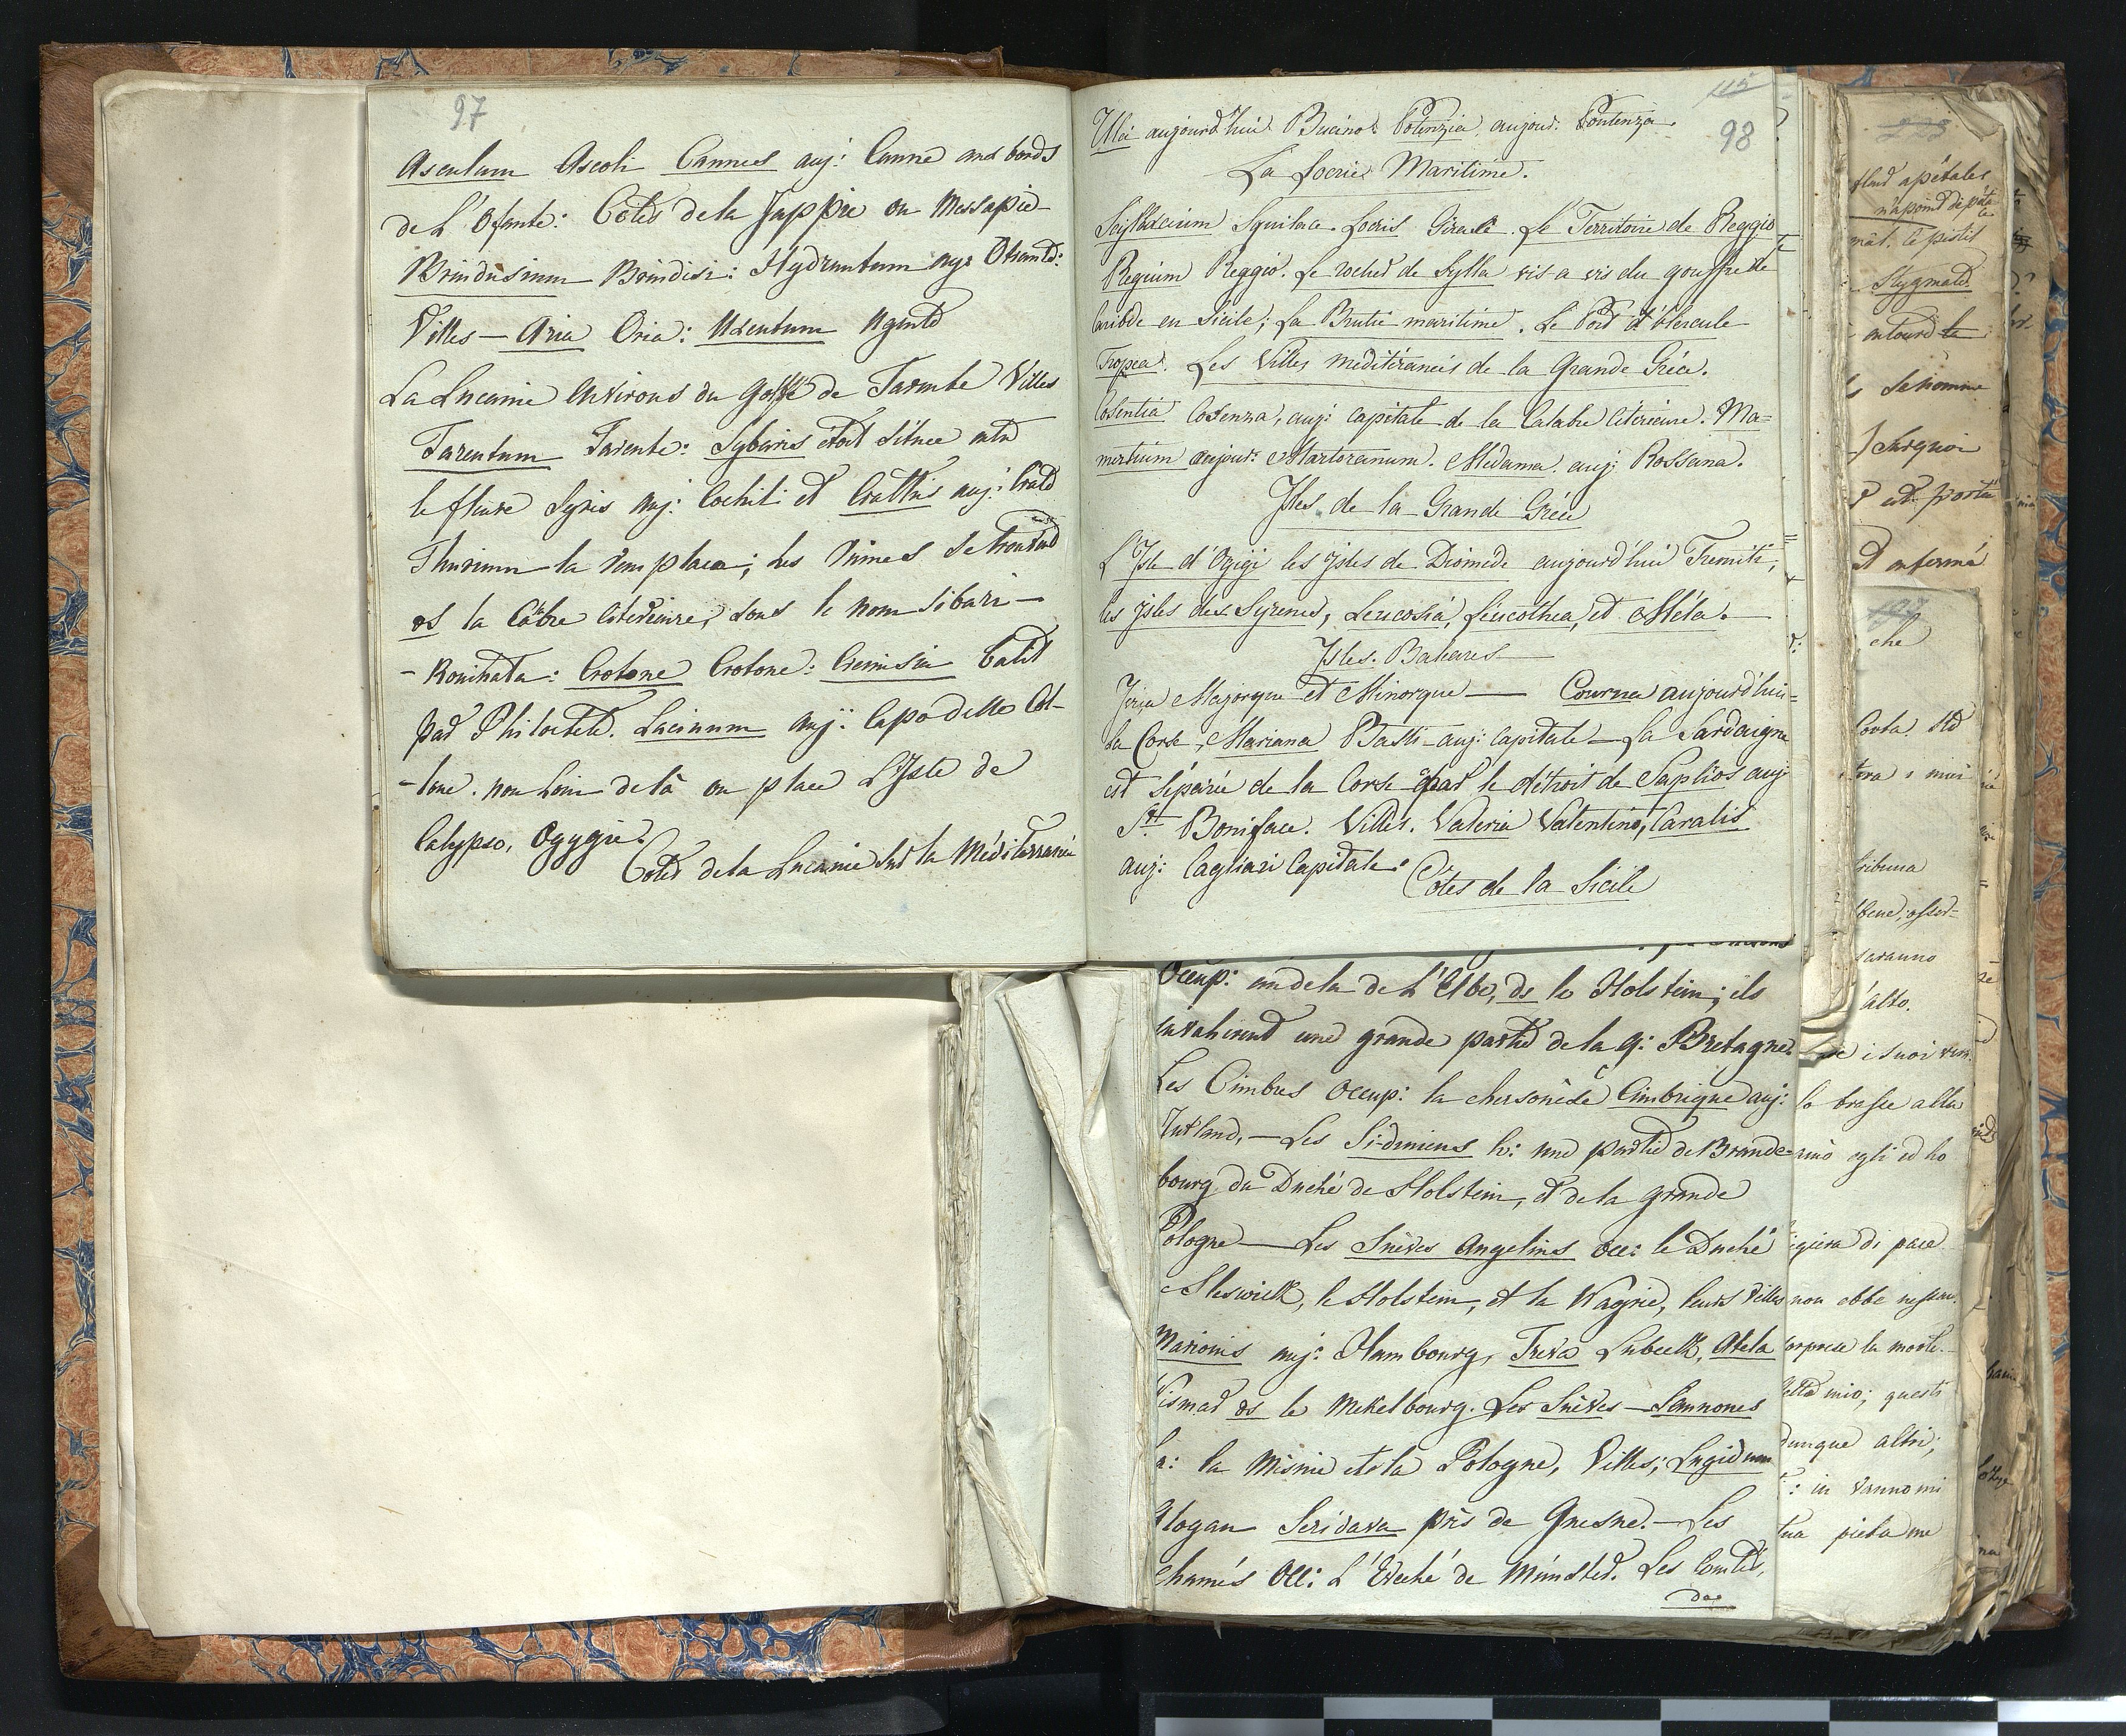 97
Asculum Ascoli Cannes auj: Canne aux bords
de L'Ofante: Côtes de la Jappie ou Messapie
Brindusium Brindisi: Hydruntum auj: Otrante:
Villes — Aria Oria: Uxentum Ugento
La Lucanie Environs du Golfe de Tarente Villes
Tarentum Tarente: Sybaris étoit située entre
le fleuve Syris auj: Cochile et Crathis auj: Crate
Thurium la remplaça; les ruines se trouvent
ds la Cabre Citérieure, sous le nom Sibari-
-Rouinata: Crotone Crotone: Crémisia Batit
par Philoctete. Lacinum auj: Capo delle Col-
-lone. non loin delà on place L'Isle de
Calypso, Ogygie.
Cotes de la Lucanie sur la Méditerranée
115
98
Ulci aujourd'hui Bucino: Potenzia aujour: Pontenza.
La Locrie Maritime.
Scyllacium Squilace Locris Girace Le Territoire de Reggio
Regium Reggio. Le rocher de Sylla vis a vis du gouffre de
Caribde en Sicile; La Brutie maritime. Le Port d'Hercule
Tropea. Les Villes mediteranées de la Grande Gréce.
Cosentia Cosenza, auj: capitale de la Calabre Citérieure. Ma-
mertium aujour: Martoranum. Medama auj: Rossana.
Isles de la Grande Gréce
L'Isle d'Ogigi les Isles de Diomede aujourd'hui Tremiti,
les Isles des Syrenes, Leucosia, Leucothea, et Mela.
Isles Baleares
Iviça Majorque et Minorque — Cournea aujourd'hui
la Corse, Mariana Basti auj: capitale — La Sardaigne
est séparée de la Corse par le détroit de Taphos auj:
St Boniface. Villes. Valeria Valentino, Caralis
auj: Cagliari Capitale: Côtes de la Sicile
Occup: audela de L'Elbe, ds le Holstein; ils
envahirent une grande partie de la G: Bretagne.
Les Cimbres Occup: la chersonése Cimbrique auj:
Jutland. — Les Si-diniens h: une partie de Brande-
bourg du Duché de Holstein, et de la grande
Pologne — Les Suèves Angelins occ: le Duché
Sleswick, le Holstein, et la Wagrie, leurs Villes
Marionis auj: Hambourg, Treva Lubeck, Alela
Vismar ds le Mekelbourg. Les Suèves — Semnones
h: la Misnie et la Pologne, Villes; Lugidunum
Glogau Seridava près de Gnesne. — Les
Chamés Occ: L'Eveché de Munster. Les Comtés,
de
223
apétales
le pistil
Stygmate
autour de
che
tribuna
saranno
alto.
i suoi
le brasse alla
egli ed ho
di pace
non ebbe
la morte.
mio; questi
dunque altri;
in vanno mi
tua pieta me